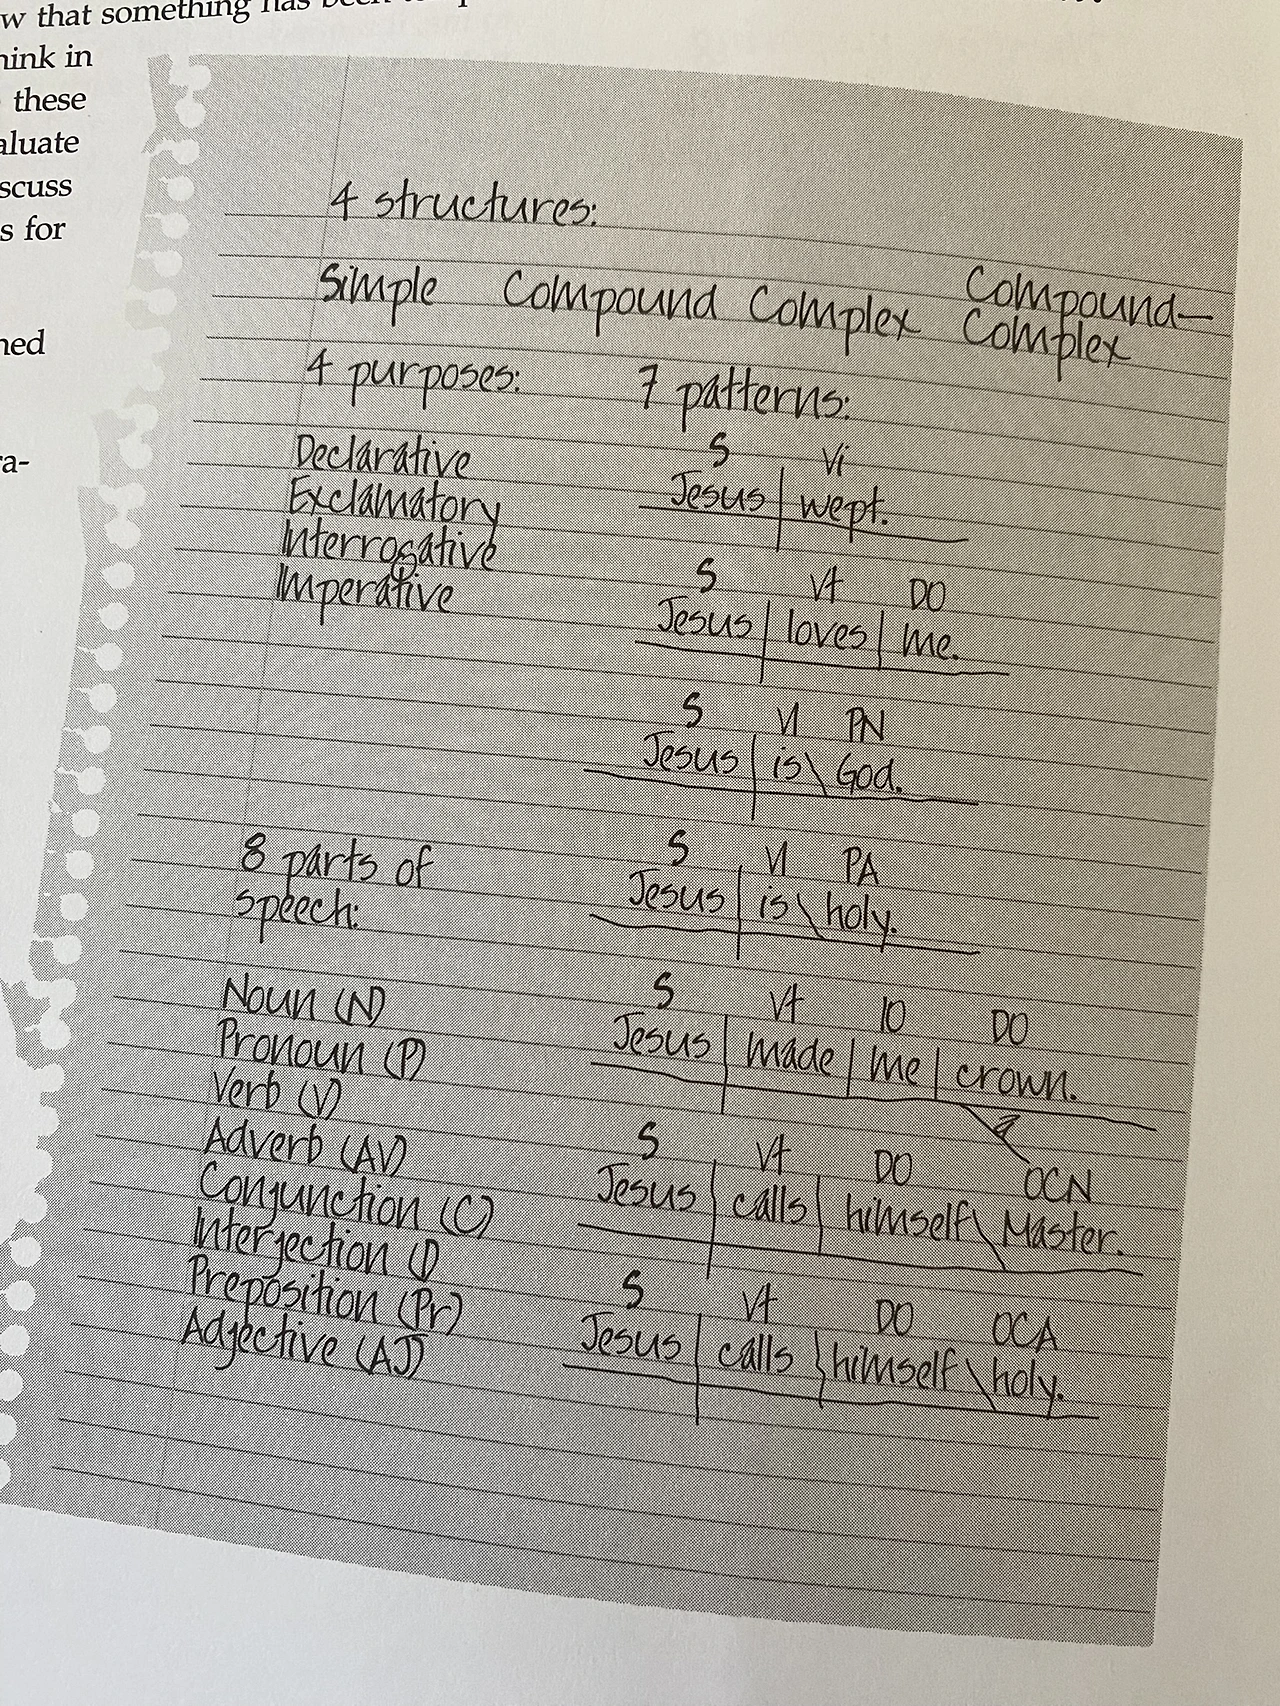 w that something has been
hink in
these
aluate
scuss
s for
ned
ra-
4 structures:
Simple Compound Complex Compound-
Complex
4 purposes:
Declarative
Exclamatory
Interrogative
Imperative
8 parts of
speech:
Noun (N)
Pronoun (P)
Verb (V)
Adverb (AV)
Conjunction (C)
Interjection (I)
Preposition (Pr)
Adjective (AJ)
7 patterns:
S Vi
Jesus wept.
S Vt DO
Jesus loves me.
S Vl PN
Jesus is God.
S Vl PA
Jesus is holy.
S Vt IO DO
Jesus made me crown.
a
S Vt DO OCN
Jesus calls himself Master.
S Vt DO OCA
Jesus calls himself holy.